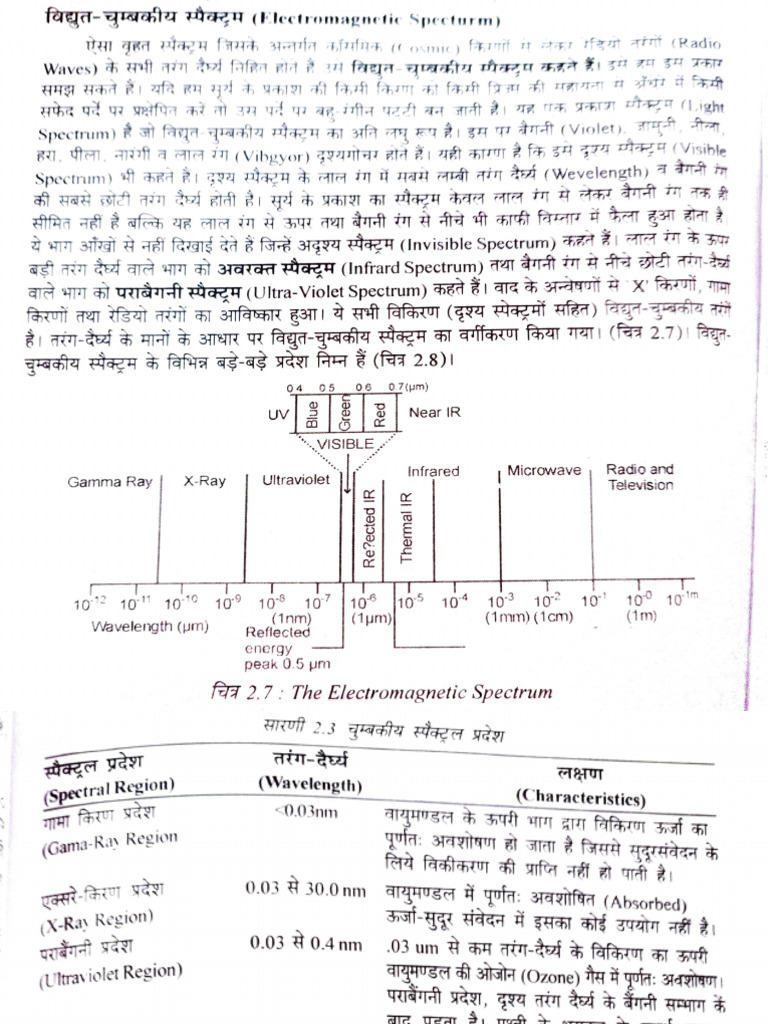 विद्युत-चुम्बकीय स्पैक्ट्रम (Electromagnetic Specturm)
ऐसा वृहत स्पैक्ट्रम जिसके अन्तर्गत कॉसमिक (Cosmic) किरणों से लेकर रेडियो तरंगों (Radio
Waves) के सभी तरंग दैर्घ्य निहित होते हैं उसे विद्युत-चुम्बकीय स्पैक्ट्रम कहते हैं। इसे हम इस प्रकार
समझ सकते हैं। यदि हम सूर्य के प्रकाश की किसी किरण को किसी प्रिज्म की सहायता से अँधेरे में किसी
सफेद पर्दे पर प्रक्षेपित करें तो उस पर्दे पर बहु-रंगीन पट्टी बन जाती है। यह एक प्रकाश स्पैक्ट्रम (Light
Spectrum) है जो विद्युत-चुम्बकीय स्पैक्ट्रम का अति लघु रूप है। इस पर बैगनी (Violet), जामुनी, नीला,
हरा, पीला, नारंगी व लाल रंग (Vibgyor) दृश्यगोचर होते हैं। यही कारण है कि इसे दृश्य स्पैक्ट्रम (Visible
Spectrum) भी कहते है। दृश्य स्पैक्ट्रम के लाल रंग में सबसे लम्बी तरंग दैर्घ्य (Wevelength) व बैगनी रंग
की सबसे छोटी तरंग दैर्घ्य होती है। सूर्य के प्रकाश का स्पैक्ट्रम केवल लाल रंग से लेकर बैगनी रंग तक ही
सीमित नहीं है बल्कि यह लाल रंग से ऊपर तथा बैगनी रंग से नीचे भी काफी विस्तार में फैला हुआ होता है
ये भाग आँखों से नहीं दिखाई देते हैं जिन्हें अदृश्य स्पैक्ट्रम (Invisible Spectrum) कहते हैं। लाल रंग के ऊपर
बड़ी तरंग दैर्घ्य वाले भाग को अवरक्त स्पैक्ट्रम (Infrard Spectrum) तथा बैगनी रंग से नीचे छोटी तरंग-दैर्घ्य
वाले भाग को पराबैगनी स्पैक्ट्रम (Ultra-Violet Spectrum) कहते हैं। वाद के अन्वेषणों से 'X' किरणों, गामा
किरणों तथा रेडियो तरंगों का आविष्कार हुआ। ये सभी विकिरण (दृश्य स्पेक्ट्रमों सहित) विद्युत-चुम्बकीय तरंगें
है। तरंग-दैर्घ्य के मानों के आधार पर विद्युत-चुम्बकीय स्पैक्ट्रम का वर्गीकरण किया गया। (चित्र 2.7)। विद्युत-
चुम्बकीय स्पैक्ट्रम के विभिन्न बड़े-बड़े प्रदेश निम्न हैं (चित्र 2.8)।
0.4 0.5 0.6 0.7(µm)
UV Blue Green Red Near IR
VISIBLE
Gamma Ray X-Ray Ultraviolet Infrared Microwave Radio and
Television
Re?ected IR Thermal IR
10-12 10-11 10-10 10-9 10-8 10-7 10-6 10-5 10-4 10-3 10-2 10-1 10-0 10-1m
(1nm) (1µm) (1mm) (1cm) (1m)
Wavelength (µm)
Reflected
energy
peak 0.5 µm
चित्र 2.7 : The Electromagnetic Spectrum
सारणी 2.3 चुम्बकीय स्पैक्ट्रल प्रदेश
स्पैक्ट्रल प्रदेश तरंग-दैर्घ्य लक्षण
(Spectral Region) (Wavelength) (Characteristics)
गामा किरण प्रदेश <0.03nm वायुमण्डल के ऊपरी भाग द्वारा विकिरण ऊर्जा का
(Gama-Ray Region पूर्णतः अवशोषण हो जाता है जिससे सुदूरसंवेदन के
लिये विकीकरण की प्राप्ति नहीं हो पाती है।
एक्सरे-किरण प्रदेश 0.03 से 30.0 nm वायुमण्डल में पूर्णतः अवशोषित (Absorbed)
(X-Ray Region) ऊर्जा-सुदूर संवेदन में इसका कोई उपयोग नहीं है।
पराबैंगनी प्रदेश 0.03 से 0.4 nm .03 um से कम तरंग-दैर्घ्य के विकिरण का ऊपरी
(Ultraviolet Region) वायुमण्डल की ओजोन (Ozone) गैस में पूर्णतः अवशोषण।
पराबैंगनी प्रदेश, दृश्य तरंग दैर्घ्य के बैंगनी सम्भाग के
बाद पड़ता है। पृथ्वी के